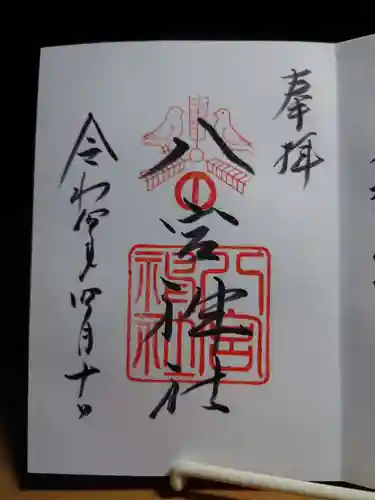 奉拝
八宮神社
八宮
神社
令和四年四月十日